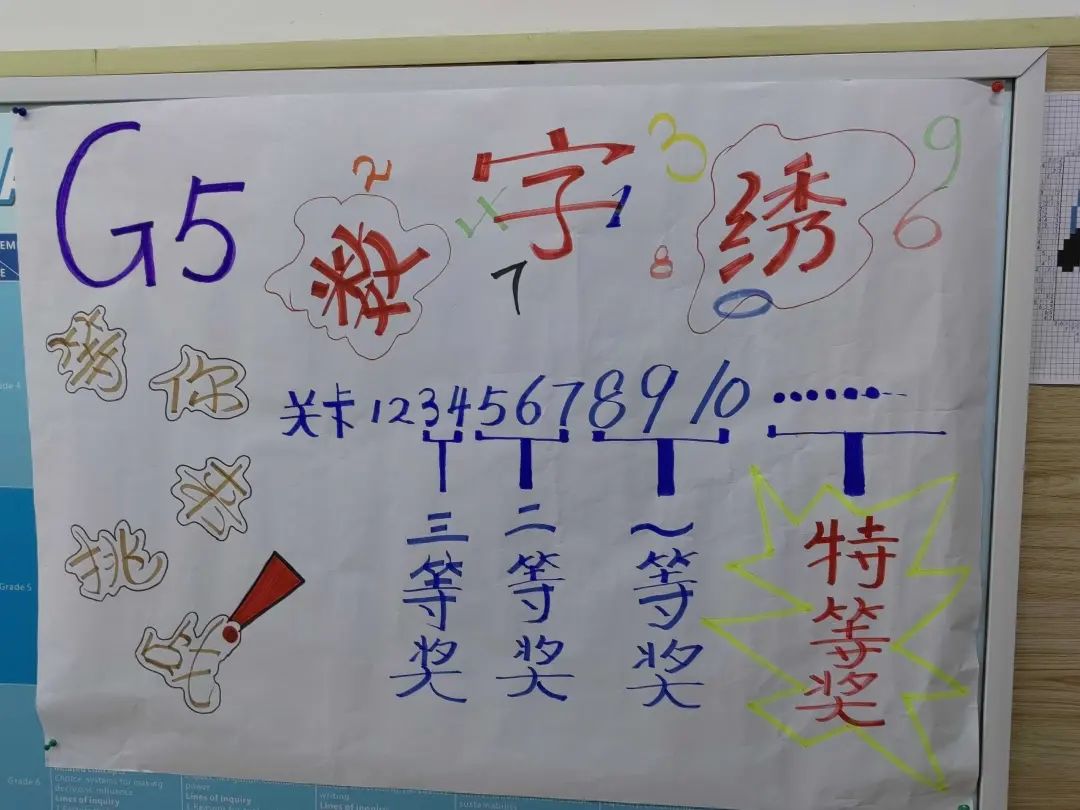 G5 数字绣
2 3 9
4 1 6
8
7 0
等你来挑战!
关卡 1 2 3 4 5 6 7 8 9 10 ……
三等奖
二等奖
一等奖
特等奖
Grade 5
Grade 6
Lines of inquiry
Lines of inquiry